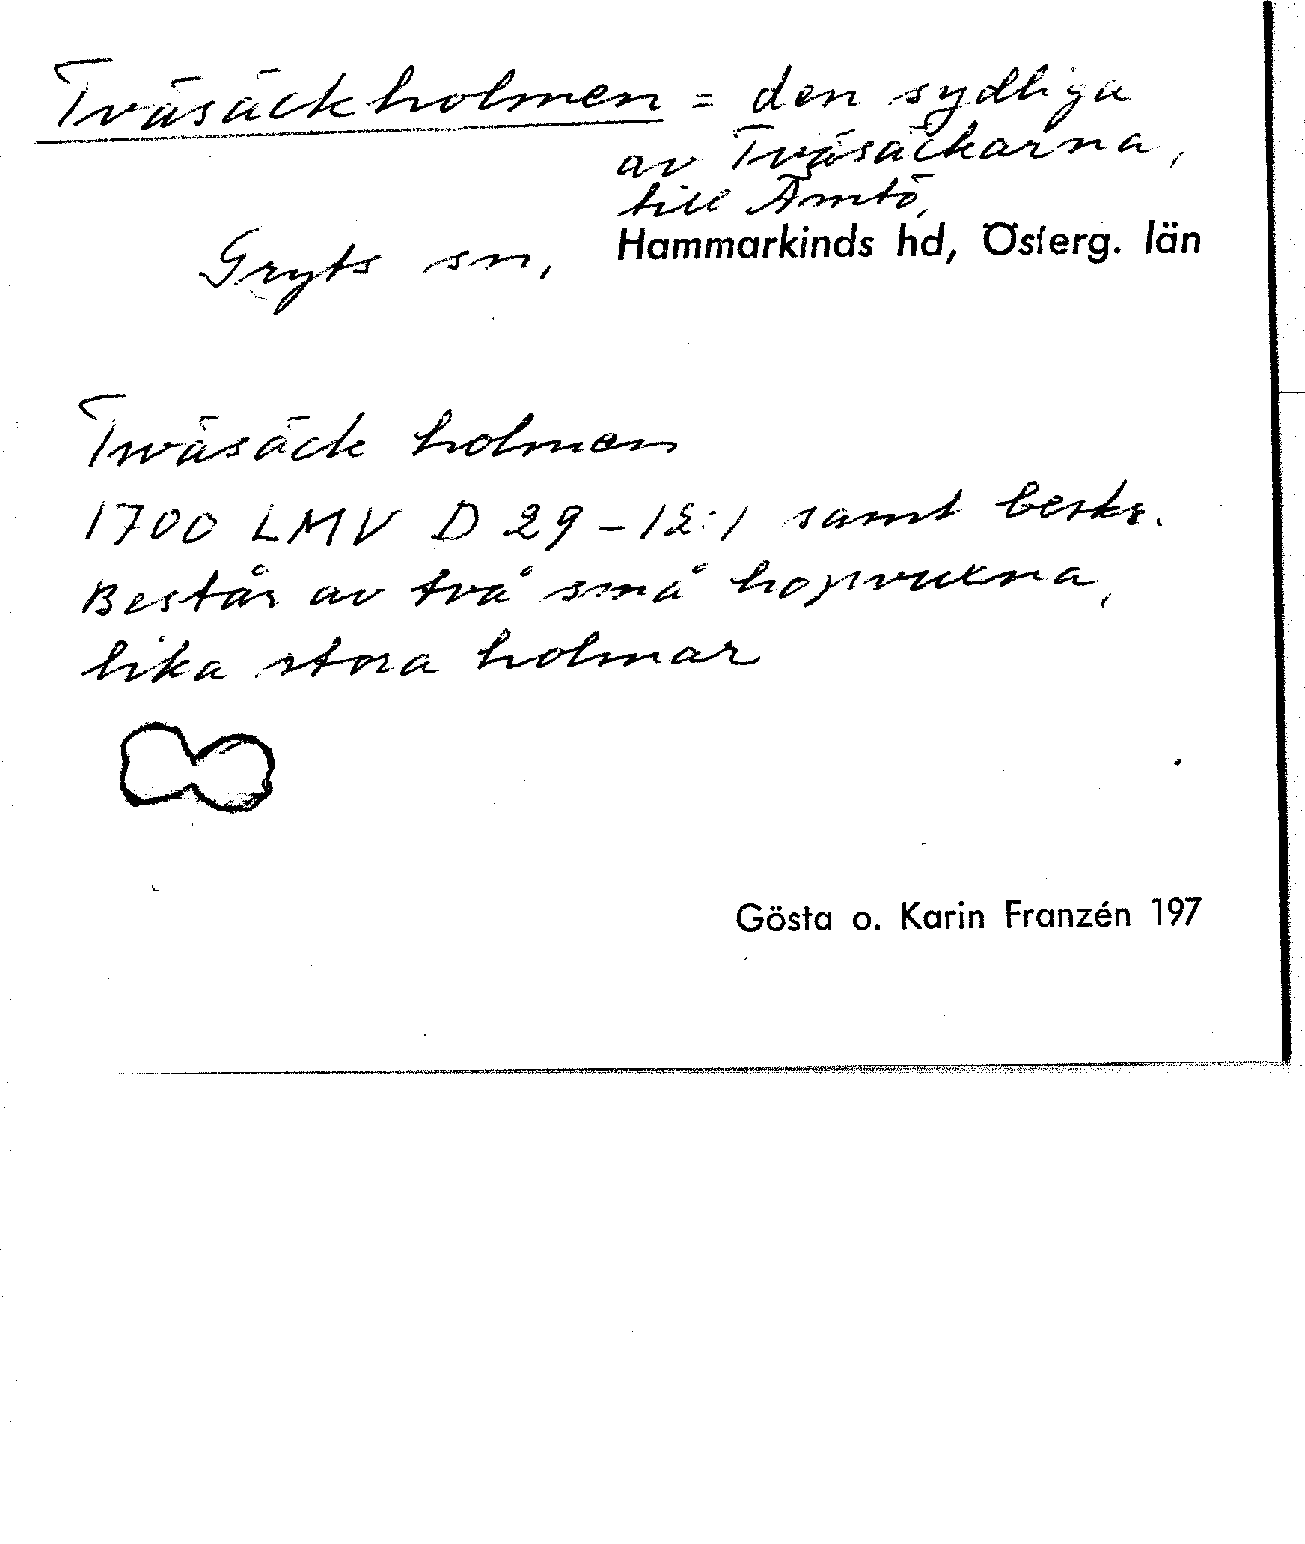 Tväsäckholmen = den sydliga
av Tväsäckarna,
till Ämtö,
Gryts sn, Hammarkinds hd, Österg. län
Twäsäck holmen
1700 LMV D 29-12:1 samt beskr.
Består av två små hopvuxna,
lika stora holmar
Gösta o. Karin Franzén 197